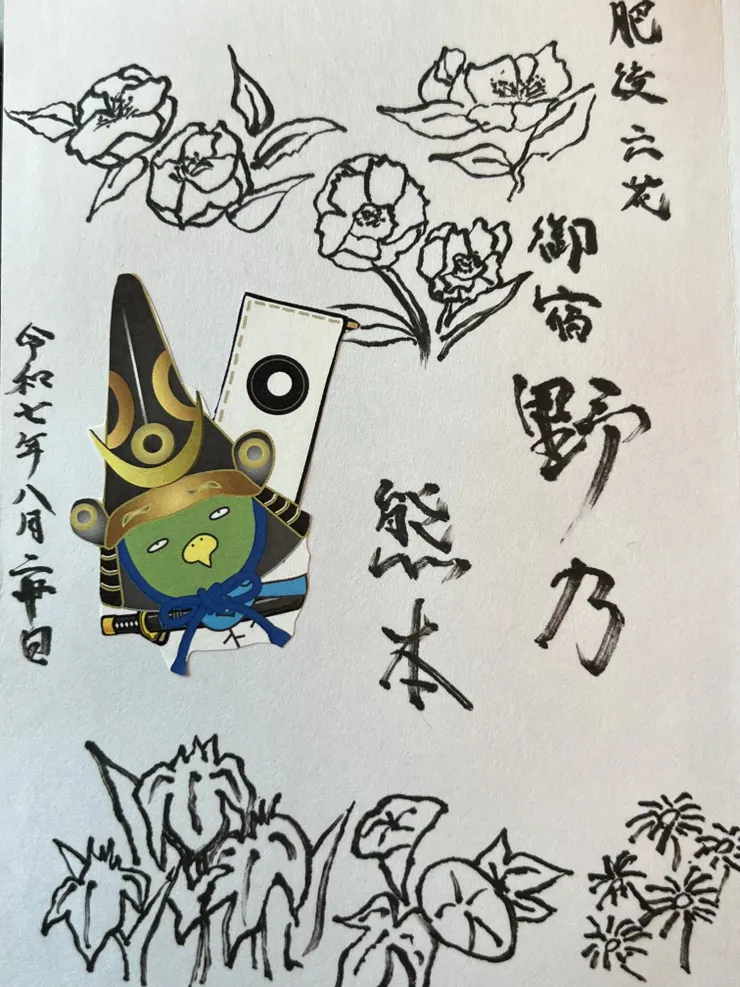 肥後六花
御宿
野乃
熊本
令和七年八月二十日